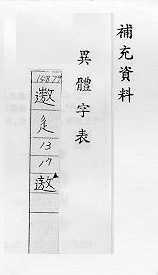 補充資料
異體字表
遨
辵
13
17